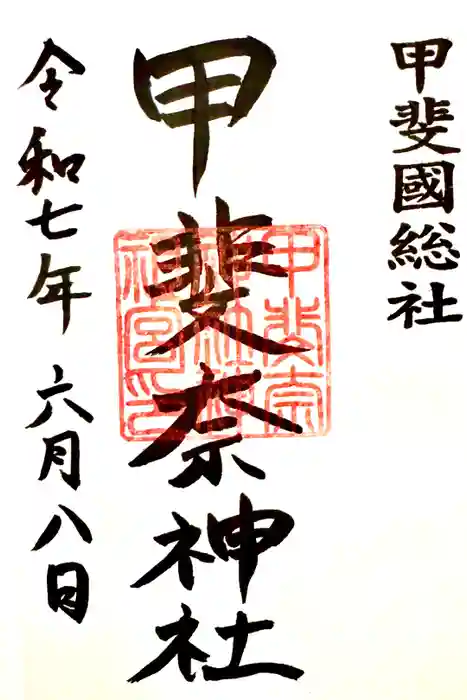 甲斐國総社
甲斐奈神社
甲斐奈
神社神
社宮印
令和七年 六月八日